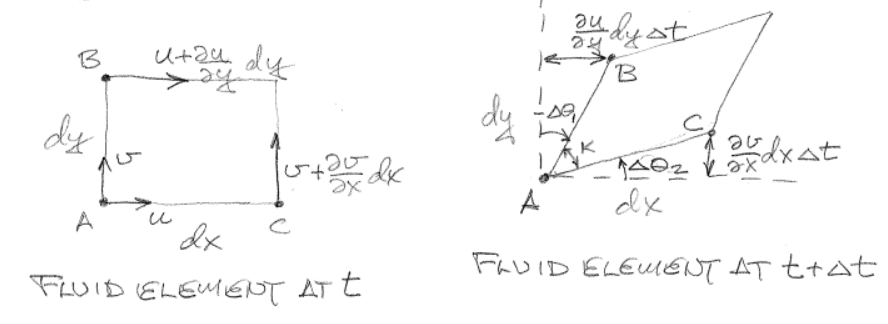 B
u+∂u/∂y dy
dy
v
v+∂v/∂x dx
A
u
dx
C
FLUID ELEMENT AT t
∂u/∂y dyΔt
B
dy
-Δθ₁
K
C
Δθ₂
∂v/∂x dxΔt
A
dx
FLUID ELEMENT AT t+Δt